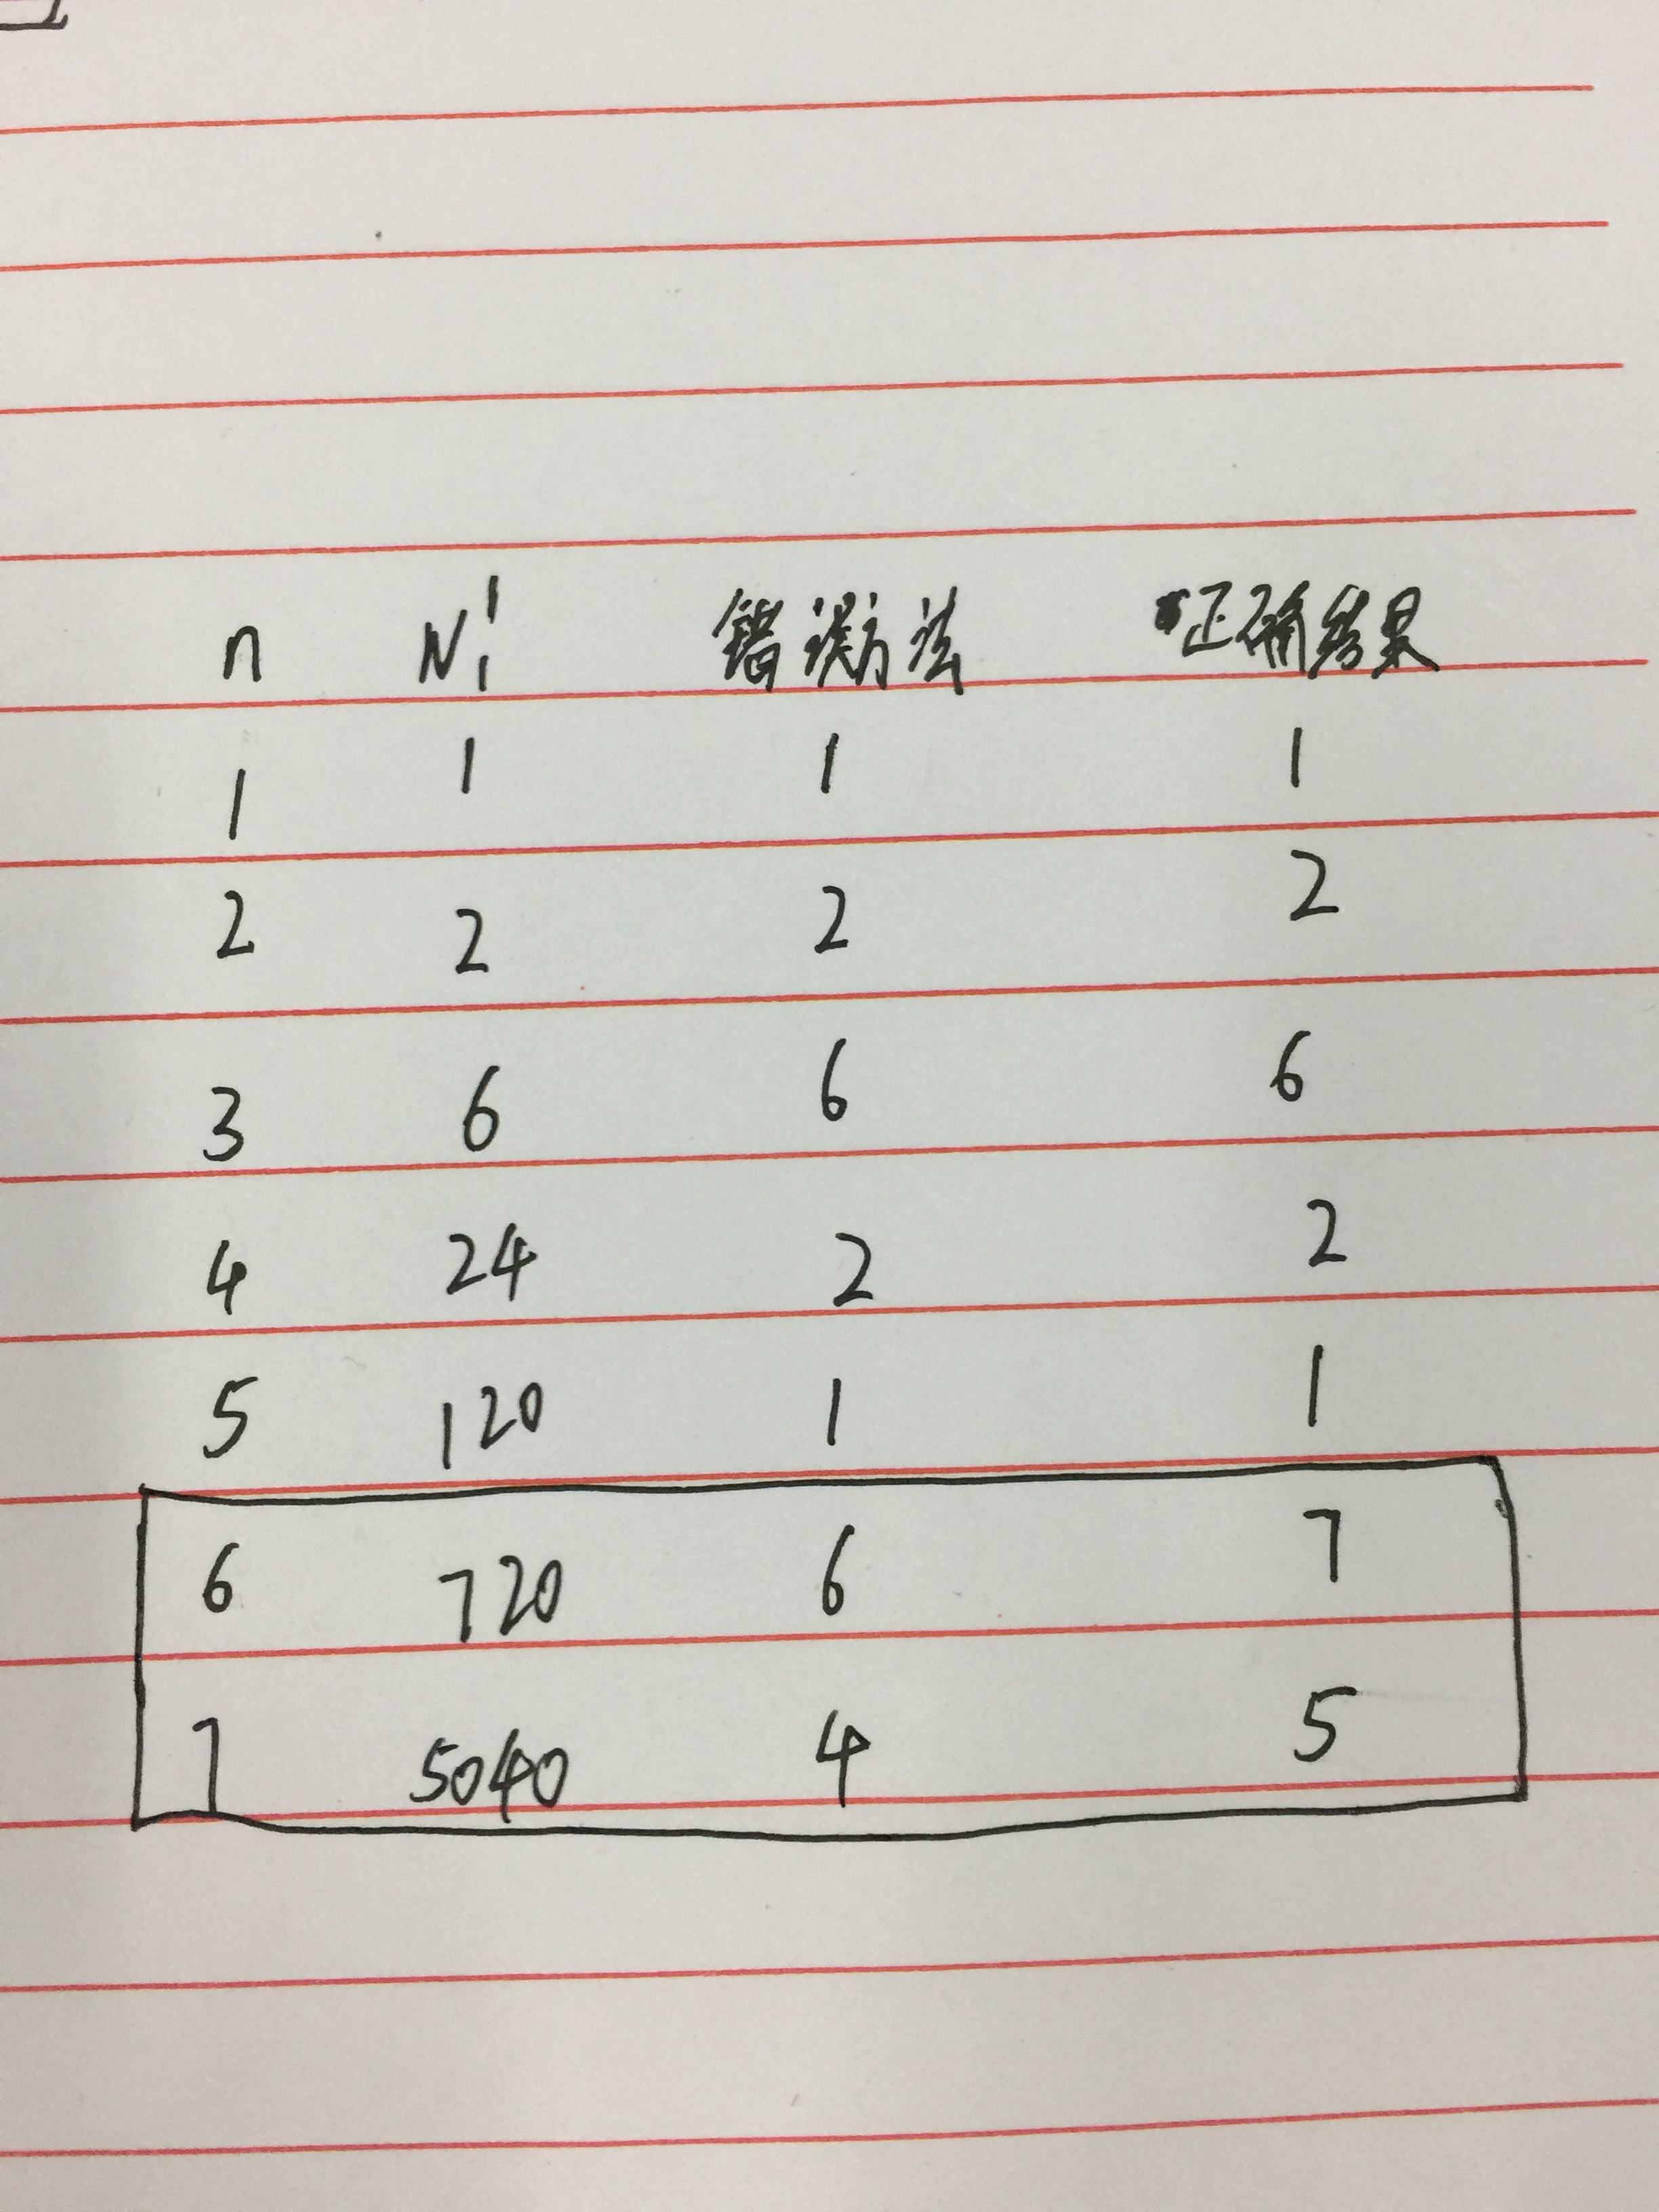 n N! 错误方法 正确结果
1 1 1 1
2 2 2 2
3 6 6 6
4 24 2 2
5 120 1 1
6 720 6 7
7 5040 4 5